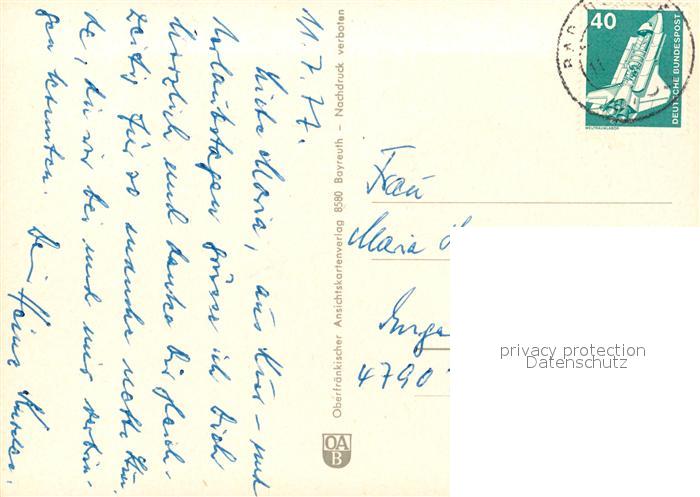 11. 7. 77.
Liebe Maria, aus Kur- und
Urlaubstagen grüsse ich Dich
herzlich und danke Dir gleich-
zeitig für so manche nette Stun-
de, die wir bei und mit
gen konnten. Dein Heinz
Oberfränkischer Ansichtskartenverlag 8580 Bayreuth – Nachdruck verboten
OA
B
BAD
40
DEUTSCHE BUNDESPOST
WELTRAUMLABOR
Frau
Maria
4790
privacy protection
Datenschutz